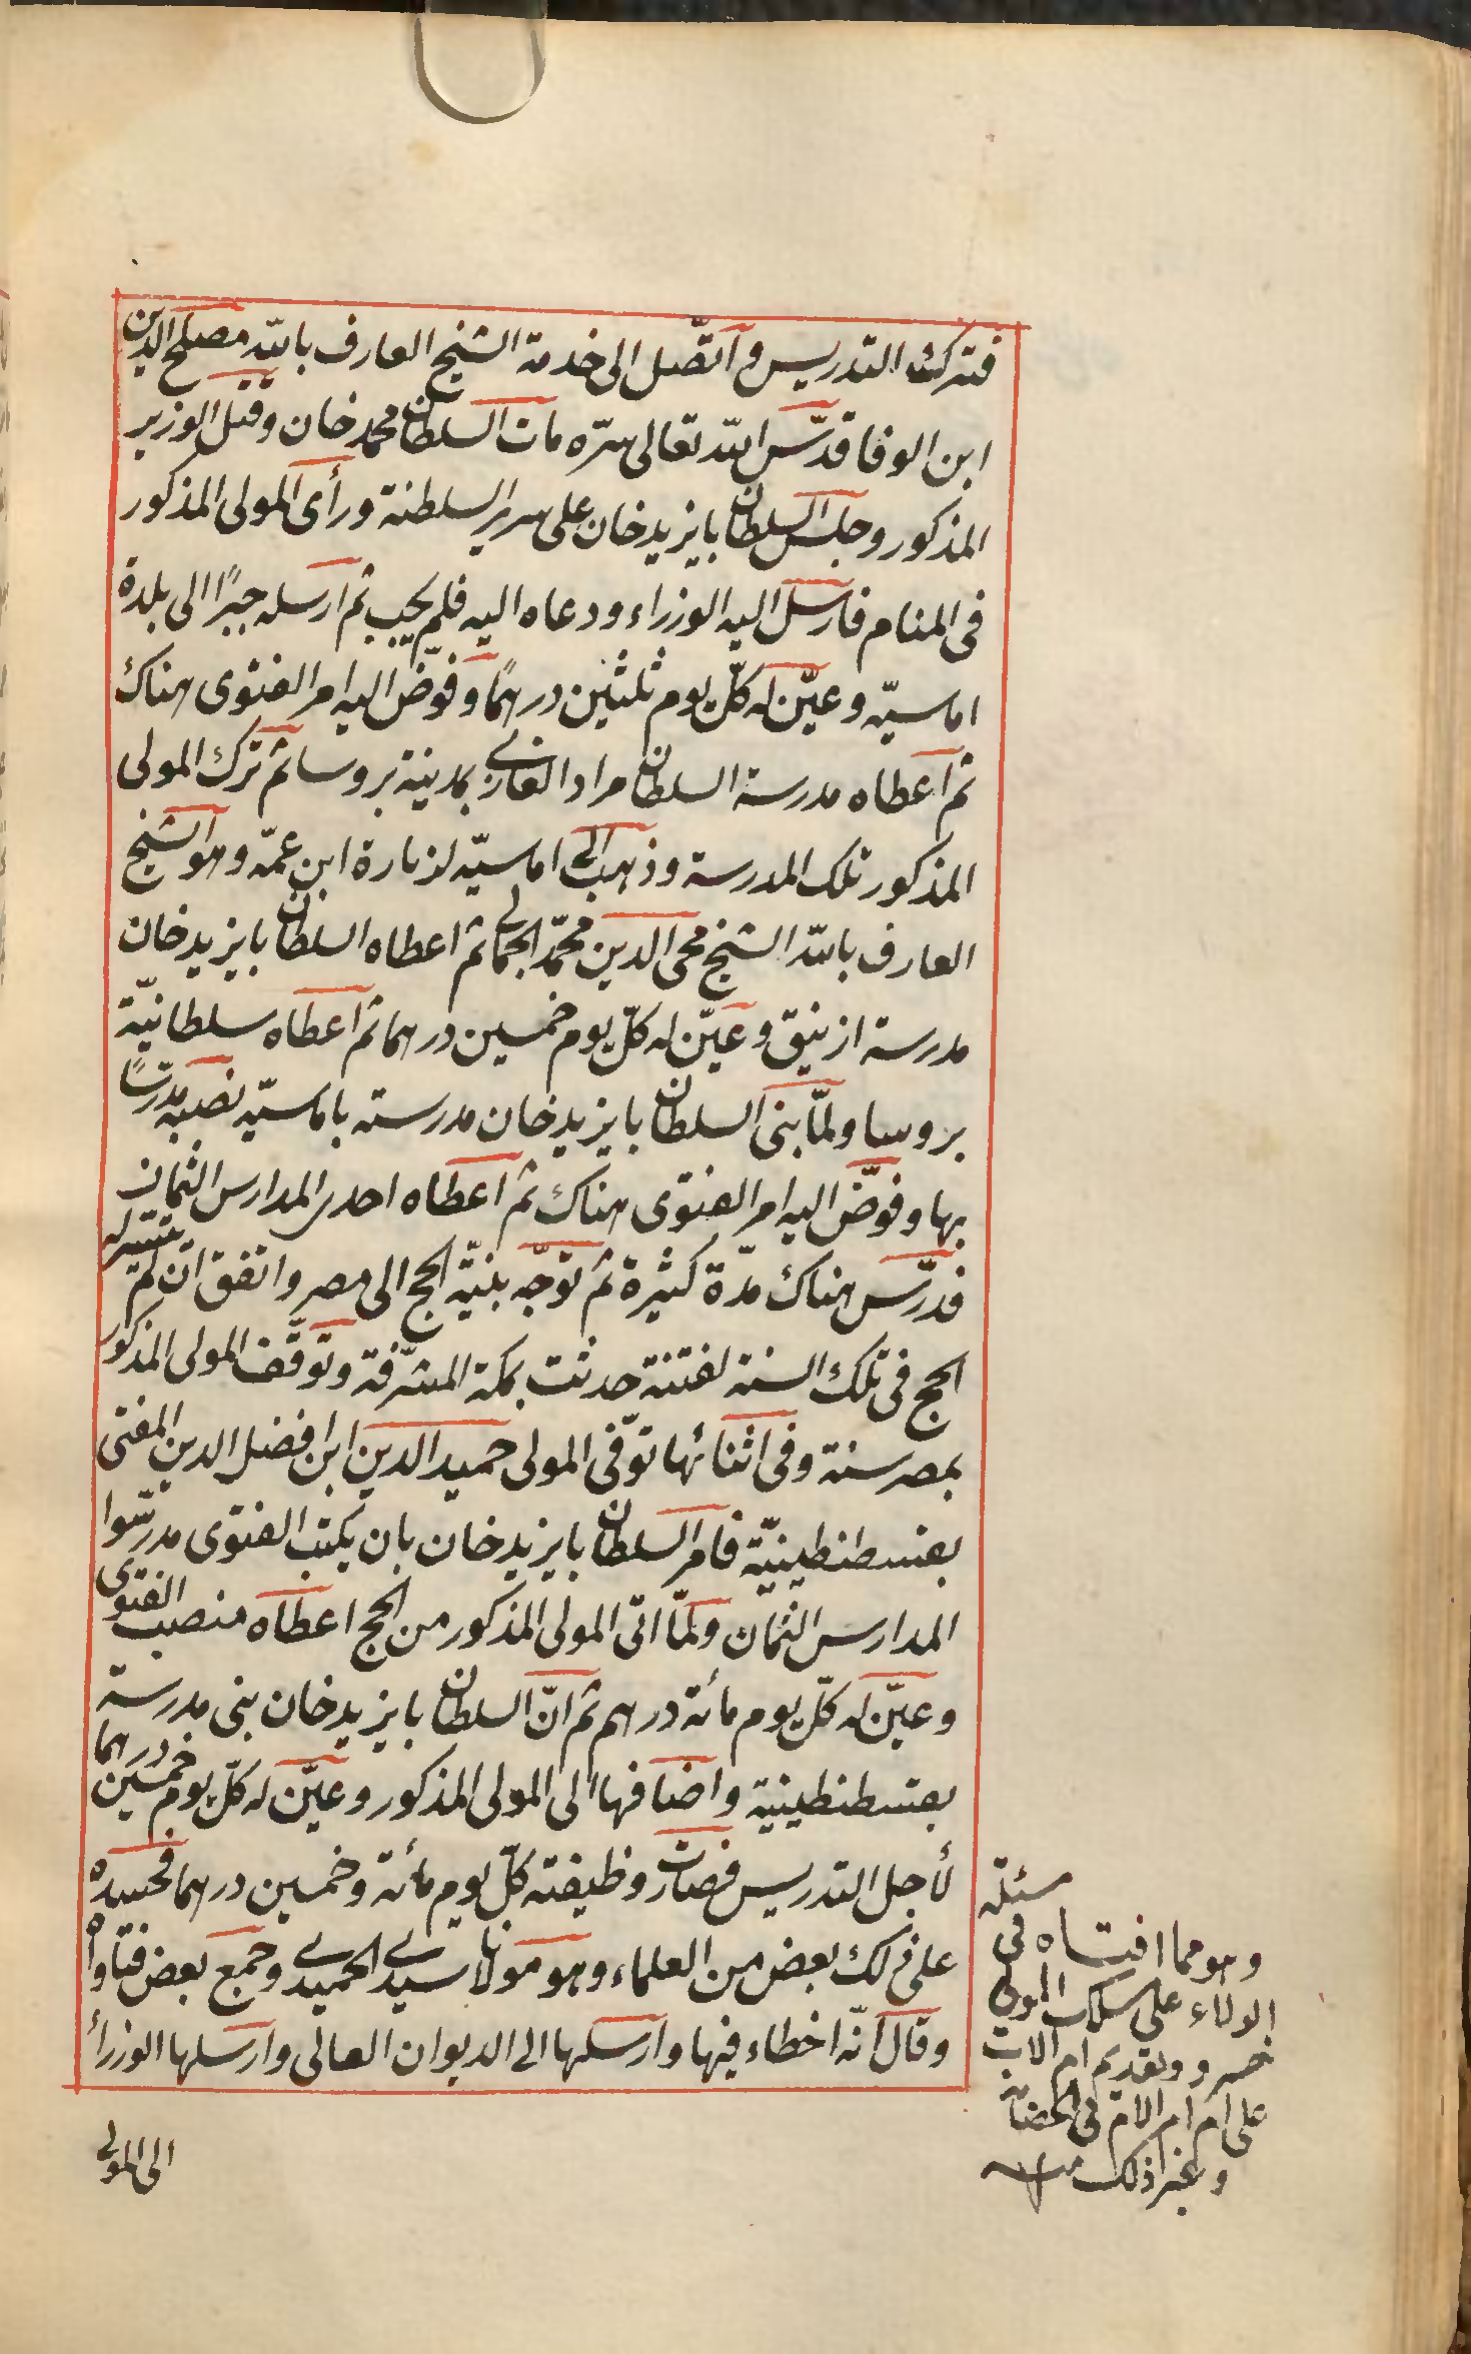 فترك التدريس واتّصل الى خدمة الشيخ العارف بالله مصلح الدين
ابن الوفا قدّس الله تعالى سرّه مات السلطان محمد خان وقتل الوزير
المذكور وجلس السلطان بايزيد خان على سرير السلطنة ورأى المولى المذكور
فى المنام فارسل اليه الوزراء ودعاه اليه فلم يجب ثم ارسله جبرًا الى بلدة
اماسيّه وعيّن له كلّ يوم ثلثين درهمًا وفوّض اليه امر الفتوى هناك
ثم اعطاه مدرسة السلطان مراد الغازى بمدينة بروسا ثم ترك المولى
المذكور تلك المدرسة وذهب الى اماسيّه لزيارة ابن عمّه وهو الشيخ
العارف بالله الشيخ محى الدين محمّد الجمالى ثم اعطاه السلطان بايزيد خان
مدرسة ازنيق وعيّن له كلّ يوم خمسين درهما ثم اعطاه سلطانيّة
بروسا ولمّا بنى السلطان بايزيد خان مدرسته باماسيّه نصبه مدرّسًا
بها وفوّض اليه امر الفتوى هناك ثم اعطاه احدى المدارس الثمان
فدرّس هناك مدّة كثيرة ثم توجّه بنيّة الحج الى مصر واتفق ان لم يتيسّر له
الحج فى تلك السنة لفتنة حدثت بمكة المشرّفة وتوقّف المولى المذكور
بمصر سنة وفى اثنائها توفّى المولى حميد الدين ابن افضل الدين المفتى
بقسطنطينيّة فامر السلطان بايزيد خان بان يكتب الفتوى مدرّسوا
المدارس الثمان ولمّا اتى المولى المذكور من الحج اعطاه منصب الفتوى
وعيّن له كلّ يوم مائة درهم ثم انّ السلطان بايزيد خان بنى مدرسة
بقسطنطينية واضافها الى المولى المذكور وعيّن له كلّ يوم خمسين درهما
لأجل التدريس فصارت وظيفته كلّ يوم مائة وخمسين درهما فحسده
على ذلك بعض من العلماء وهو مولانا سيدى الحميدى وجمع بعض فتاواه
وقال انّه اخطاء فيها وارسلها الى الديوان العالى وارسلها الوزراء
الى المولى
مسئلة
وهو مما افتاه فى
الولاء على مسلك المولى
خسرو وتقديم ام الاب
على ام ام الام فى الحضانة
وغير ذلك منه